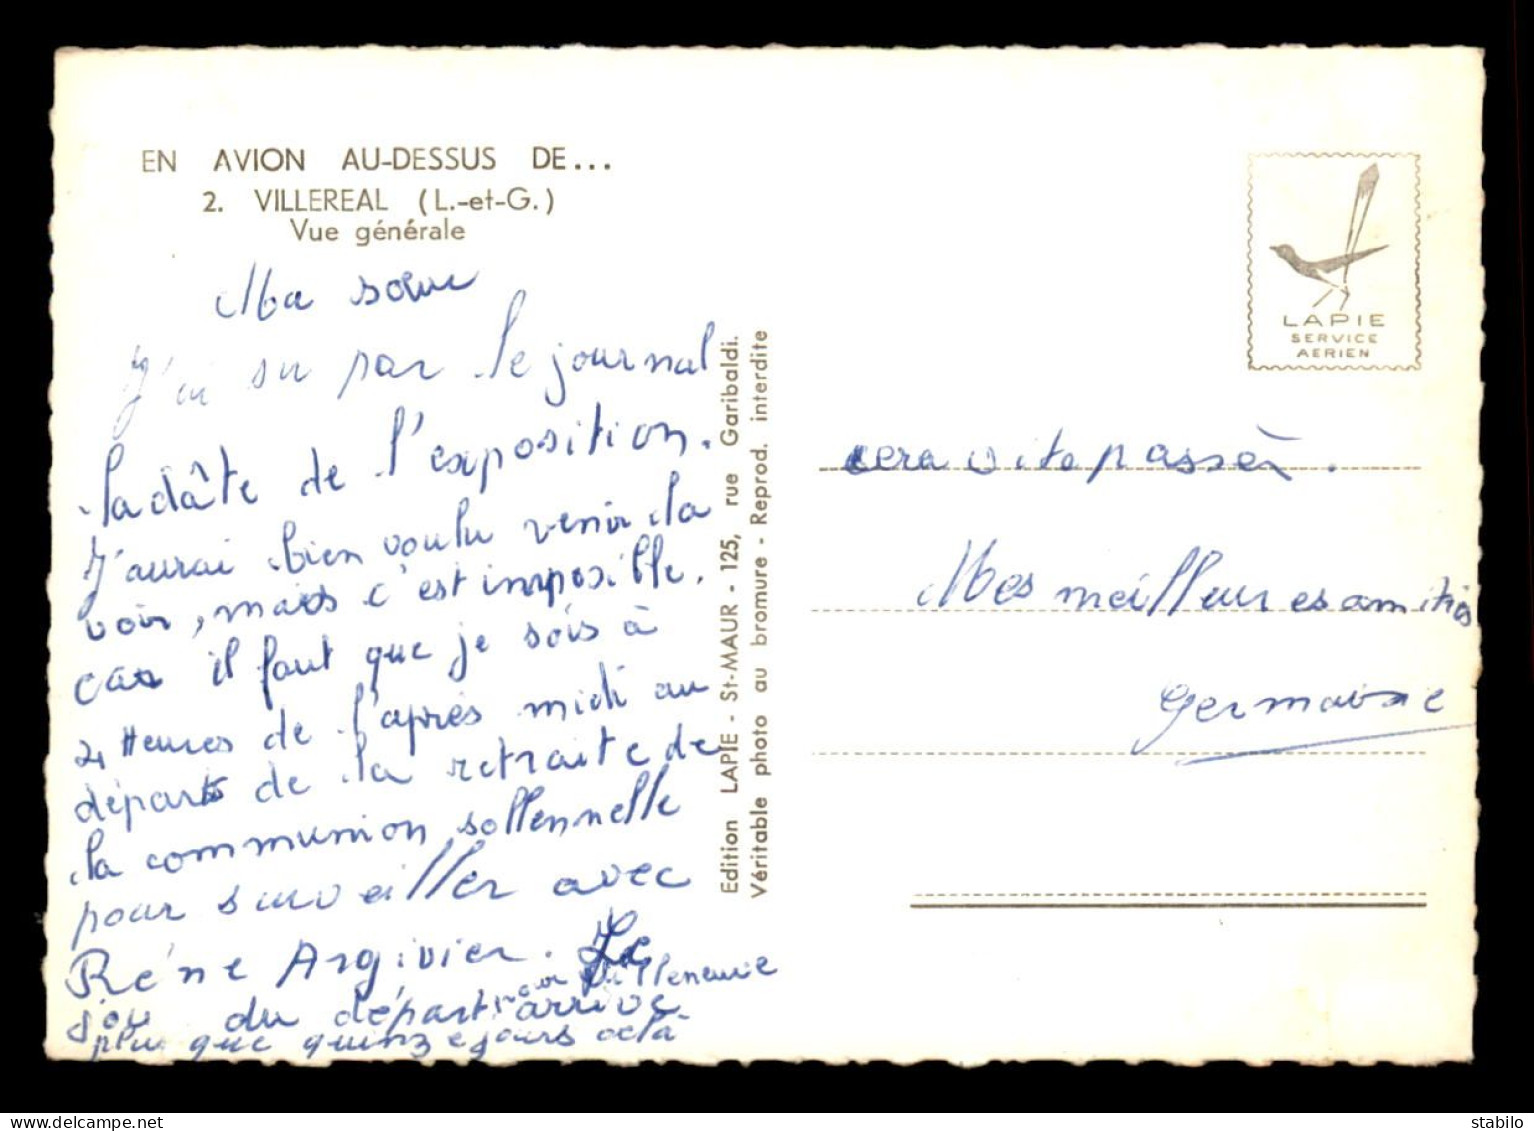 EN AVION AU-DESSUS DE...
2. VILLEREAL (L.-et-G.)
Vue générale
Ma sœur
J'ai su par le journal
la dâte de l'exposition.
J'aurai bien voulu venir la
voir, mais c'est impossible.
car il faut que je sois à
2 Heures de l'après midi au
départ de la retraite de
la communion sollennelle
pour surveiller avec
Réne Argivier. Le
jour du départ pour Villeneuve arrive
plus que quinze jours cela
Edition LAPIE - St-MAUR - 125, rue Garibaldi.
Véritable photo au bromure - Reprod. interdite
LAPIE
SERVICE
AERIEN
cera vite passèr.
Mes meilleures amitiés
Germaine
delcampe.net
stabilo